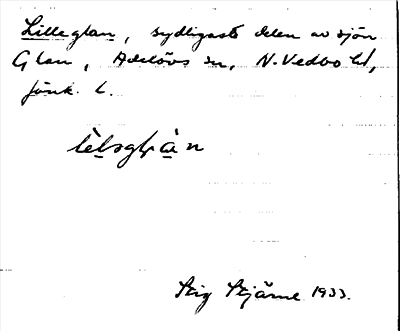 Lilleglan, sydligaste delen av sjön
Glan, Adelövs sn, N. Vedbo hd,
jönk. l.
Stig Stjärne 1933.